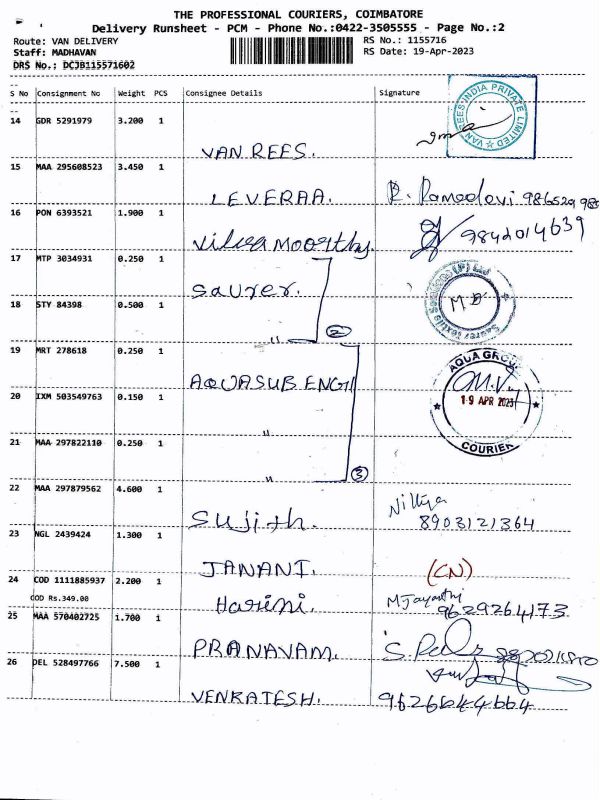 THE PROFESSIONAL COURIERS, COIMBATORE
Delivery Runsheet - PCM - Phone No.:0422-3505555 - Page No.:2
Route: VAN DELIVERY RS No.: 1155716
Staff: MADHAVAN RS Date: 19-Apr-2023
DRS No.: DCJB115571602
S No Consignment No Weight PCS Consignee Details Signature
14 GDR 5291979 3.200 1
VAN REES INDIA PRIVATE LIMITED
VAN REES.
15 MAA 295608523 3.450 1
LEVERAA. R. Ramadevi
16 PON 6393521 1.900 1
9842014639
17 MTP 3034931 0.250 1
Saurer.
18 STY 84398 0.500 1
" 2
19 MRT 278618 0.250 1
AQUASUB ENGG
AQUA GROUP
19 APR 2023
COURIER
20 IXM 503549763 0.150 1
"
21 MAA 297822110 0.250 1
" 3
22 MAA 297879562 4.600 1
Sujith. Nithya
8903121364
23 NGL 2439424 1.300 1
JANANI. (CN)
24 COD 1111885937 2.200 1
COD Rs.349.00
Harini. M Jayanthi
9629264173
25 MAA 570402725 1.700 1
PRANAVAM.
26 DEL 528497766 7.500 1
VENKATESH. 9626644664